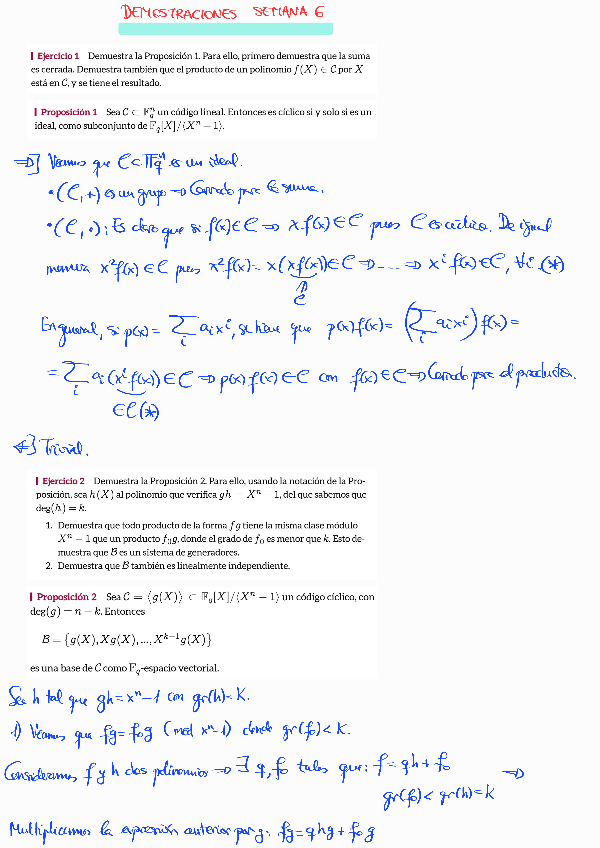 DEMOSTRACIONES SEMANA 6
Ejercicio 1 Demuestra la Proposición 1. Para ello, primero demuestra que la suma
es cerrada. Demuestra también que el producto de un polinomio f(X) ∈ C por X
está en C, y se tiene el resultado.
Proposición 1 Sea C ⊂ 𝔽ⁿ_q un código lineal. Entonces es cíclico si y solo si es un
ideal, como subconjunto de 𝔽_q[X]/⟨Xⁿ − 1⟩.
⇒] Veamos que C ⊂ 𝔽ⁿ_q es un ideal.
• (C, +) es un grupo ⇒ Cerrado para la suma.
• (C, ·): Es claro que si f(x) ∈ C ⇒ x f(x) ∈ C pues C es cíclico. De igual
manera x² f(x) ∈ C pues x² f(x) = x (x f(x)) ∈ C ⇒ ... ⇒ xⁱ f(x) ∈ C, ∀i (*)
C
En general, si p(x) = Σ_i a_i xⁱ, se tiene que p(x) f(x) = (Σ_i a_i xⁱ) f(x) =
= Σ_i a_i (xⁱ f(x)) ∈ C ⇒ p(x) f(x) ∈ C con f(x) ∈ C ⇒ Cerrado para el producto.
∈ C (*)
⇐] Trivial.
Ejercicio 2 Demuestra la Proposición 2. Para ello, usando la notación de la Pro-
posición, sea h(X) al polinomio que verifica gh = Xⁿ − 1, del que sabemos que
deg(h) = k.
1. Demuestra que todo producto de la forma fg tiene la misma clase módulo
Xⁿ − 1 que un producto f₀g, donde el grado de f₀ es menor que k. Esto de-
muestra que B es un sistema de generadores.
2. Demuestra que B también es linealmente independiente.
Proposición 2 Sea C = ⟨g(X)⟩ ⊂ 𝔽_q[X]/⟨Xⁿ − 1⟩ un código cíclico, con
deg(g) = n − k. Entonces
B = {g(X), Xg(X), ..., Xᵏ⁻¹g(X)}
es una base de C como 𝔽_q-espacio vectorial.
Sea h tal que gh = xⁿ − 1 con gr(h) = K.
1) Veamos que fg = f₀g (mod xⁿ − 1) donde gr(f₀) < K.
Consideramos f y h dos polinomios ⇒ ∃ q, f₀ tales que: f = qh + f₀ ⇒
gr(f₀) < gr(h) = K
Multiplicamos la expresión anterior por g: fg = qhg + f₀g